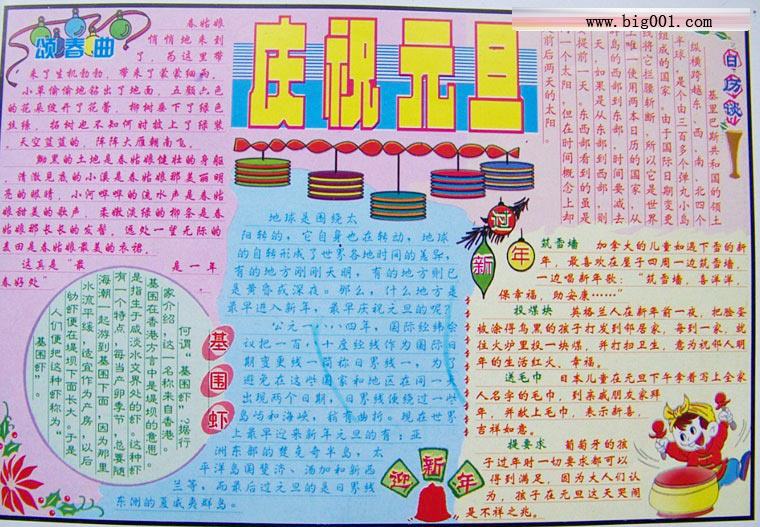 http://www.big001.com
颂春曲
春姑娘
悄悄地来到
了,芮这里带
来了生机勃勃,带来了蒙蒙细雨,
小草偷偷地钻出了地面,五颜六色
的花朵绽开了花蕾,柳树垂下了绿色
丝绦,杨树也不知何时披上了绿装
。天空蓝蓝的,阵阵大雁朝南飞。
脚里的土地是春姑娘健壮的身躯
,清澈见底的小溪是春姑娘那美丽明
亮的眼睛,小河哗哗的流水声是春姑
娘甜美的歌声,柔嫩淡绿的柳条是春
姑娘那长长的发髻,远处一望无际的
麦田是春姑娘最美的衣裙。
这真是"最 是一年
春好处"
庆祝元旦
日历谈
基里巴斯共和国的领土
纵横跨越东、西、南、北四个
半球,是个由三百多个弹丸小岛
组成的国家,由于国际日期变更
线将它拦腰斩断,所以它是世界
上唯一使用两本日历的国家。
西部到东部,时间要减去
天,如果是从东部到西部,则
提前一天。东西部看到的虽是
一个太阳,但在时间概念上却
前后两天的太阳。
基围虾
何谓"基围虾"?据行
家介绍:这一名称来自香港。
基围在香港方言中是堤坝的意思。
是指生于咸淡水交界处的虾。这种虾
有一个特点,每当产卵季节,总要随
海潮一起游到基围下面,因为那里
水流平缓,适宜作为产房,以后
幼虾便在堤坝下面长大。于是
人们便把这种虾称为"
基围虾"。
地球是围绕太
阳转的,它自身也在转动,地球
的自转形成了世界各地时间的差异,
有的地方刚刚天明,有的地方则已
是黄昏或深夜。那么,什么地方是
最早进入新年,最早庆祝元旦的呢?
公元一八八四年,国际经纬会
议把一百八十度经线作为国际日
期变更线——简称日界线。为了
避免在这些国家和地区在同一天
出现两个日期,日界线便绕过一些
岛屿和海峡,稍有曲折。现在世界
上最早迎来新年元旦的有:亚
洲东部的楚克奇半岛,太
平洋岛国斐济、汤加和新西
兰等,而最后过元旦的是日界线
东洲的夏威夷群岛。
讨
新年
筑雪墙 加拿大的儿童如遇下雪的新
年,最喜欢在屋子四周一边筑雪墙,
一边唱新年歌:"筑雪墙,喜洋洋,
保幸福,助安康……"
投煤块 英格兰人在新年前一夜,把脸蛋
被涂得乌黑的孩子打发到邻居家,每到一家,就
往火炉里投一块煤,并打扫卫生,意为祝邻人明
年的生活红火、幸福。
送毛巾 日本儿童在元旦下午拿着写上全家
人名字的毛巾,到亲戚朋友家拜
年,并献上毛巾,表示新喜,
吉祥如意。
提要求 葡萄牙的孩
子过年时一切要求都可以
得到满足,因为大人们认
为,孩子在元旦这天哭闹
是不祥之兆。
迎新年